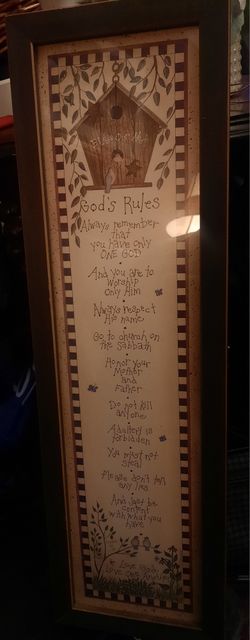 God's Rules
Always remember
that
you have only
ONE GOD
And you are to
worship
only Him
Always respect
His name
Go to church on
the Sabbath
Honor your
Mother
and
Father
Do not kill
anyone
Adultery is
forbidden
You must not
steal
Please don't tell
any lies
And just be
content
with what you
have